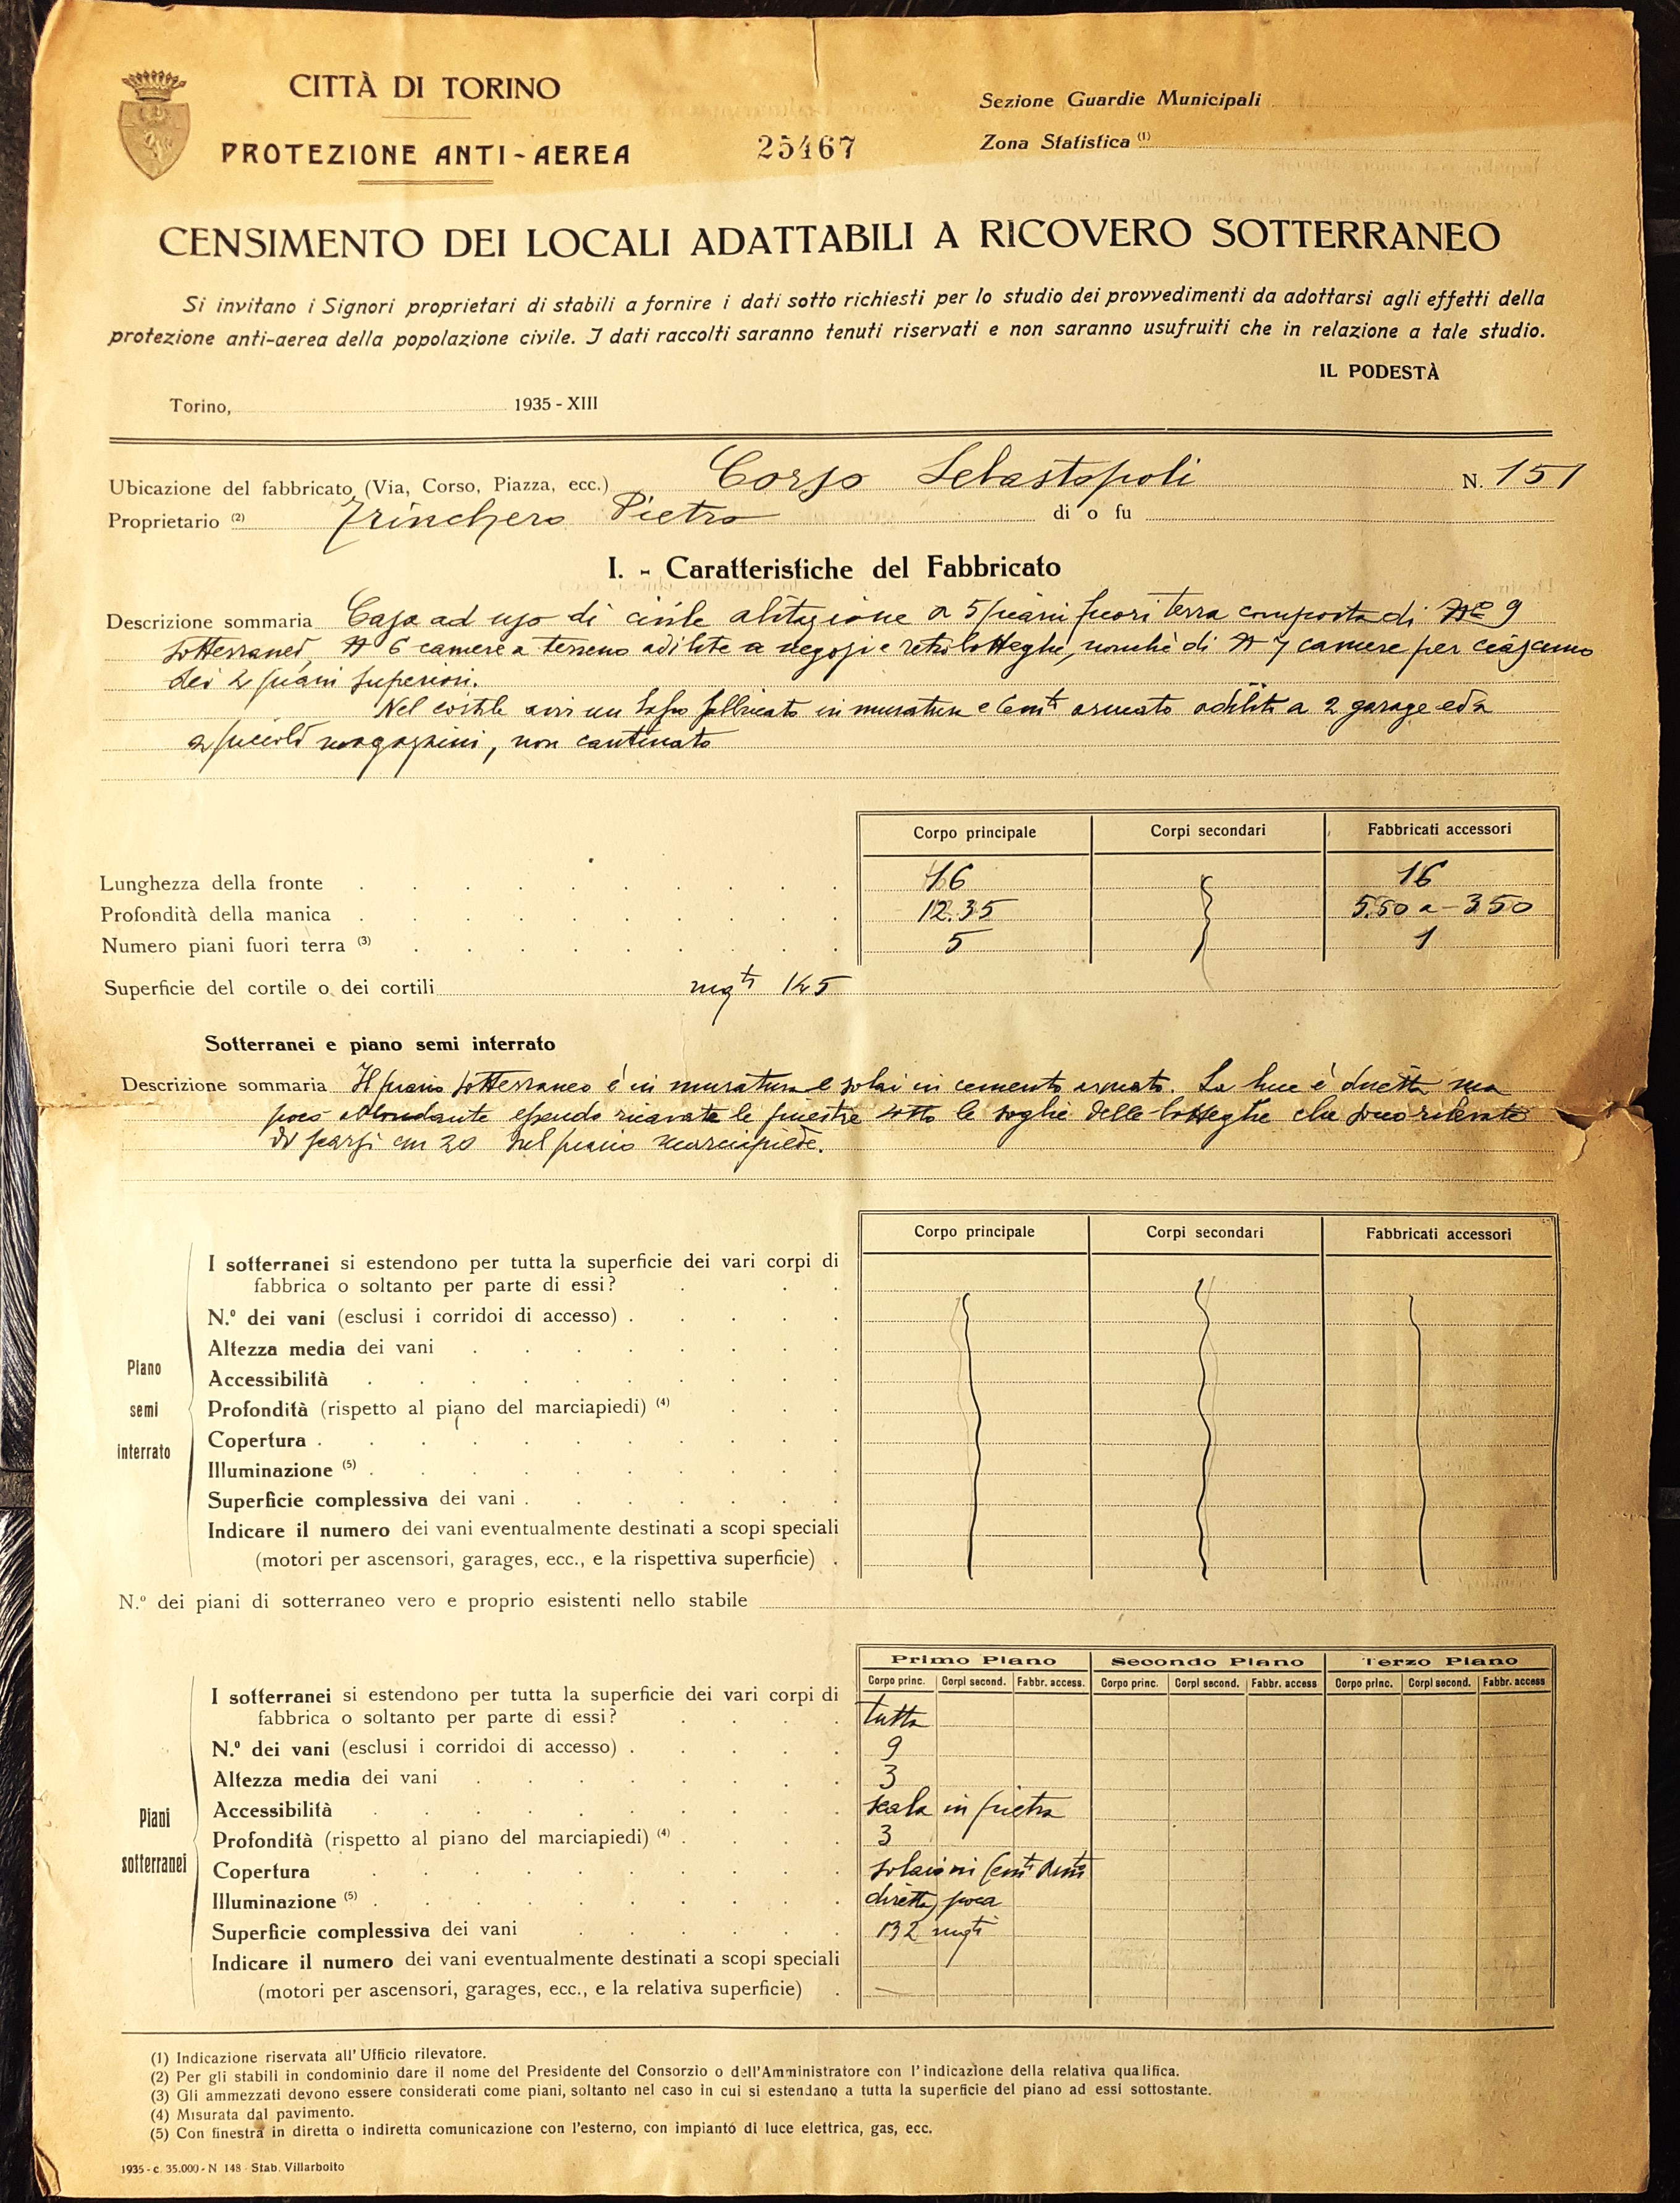 CITTÀ DI TORINO
PROTEZIONE ANTI-AEREA
25467
Sezione Guardie Municipali
Zona Statistica (1)
CENSIMENTO DEI LOCALI ADATTABILI A RICOVERO SOTTERRANEO
Si invitano i Signori proprietari di stabili a fornire i dati sotto richiesti per lo studio dei provvedimenti da adottarsi agli effetti della
protezione anti-aerea della popolazione civile. I dati raccolti saranno tenuti riservati e non saranno usufruiti che in relazione a tale studio.
IL PODESTÀ
Torino, 1935 - XIII
Ubicazione del fabbricato (Via, Corso, Piazza, ecc.) Corso Sebastopoli N. 151
Proprietario (2) Trinchero Pietro di o fu
I. - Caratteristiche del Fabbricato
Descrizione sommaria Casa ad uso di civile abitazione a 5 piani fuori terra composta di N° 9
sotterranei, N 6 camere a terreno adibite a negozi e retrobotteghe, nonchè di N 7 camere per ciascuno
dei 2 piani superiori.
Nel cortile avvi un basso fabbricato in muratura e Cemto armato adibito a 2 garage ed a
2 piccoli magazzini, non cantinato
Corpo principale Corpi secondari Fabbricati accessori
Lunghezza della fronte 16 16
Profondità della manica 12.35 5.50 a - 3.50
Numero piani fuori terra (3) 5 1
Superficie del cortile o dei cortili mqti 145
Sotterranei e piano semi interrato
Descrizione sommaria Il piano sotterraneo è in muratura e solai in cemento armato. La luce è diretta ma
poco abbondante essendo ricavate le finestre sotto le soglie delle botteghe che sono rilevate
di cm 20 sul piano marciapiede.
Corpo principale Corpi secondari Fabbricati accessori
Piano semi interrato
I sotterranei si estendono per tutta la superficie dei vari corpi di
fabbrica o soltanto per parte di essi?
N.º dei vani (esclusi i corridoi di accesso)
Altezza media dei vani
Accessibilità
Profondità (rispetto al piano del marciapiedi) (4)
Copertura
Illuminazione (5)
Superficie complessiva dei vani
Indicare il numero dei vani eventualmente destinati a scopi speciali
(motori per ascensori, garages, ecc., e la rispettiva superficie)
N.º dei piani di sotterraneo vero e proprio esistenti nello stabile
Primo Piano Secondo Piano Terzo Piano
Corpo princ. Corpi second. Fabbr. access. Corpo princ. Corpi second. Fabbr. access Corpo princ. Corpi second. Fabbr. access
Piani sotterranei
I sotterranei si estendono per tutta la superficie dei vari corpi di
fabbrica o soltanto per parte di essi? tutta
N.º dei vani (esclusi i corridoi di accesso) 9
Altezza media dei vani 3
Accessibilità scala in pietra
Profondità (rispetto al piano del marciapiedi) (4) 3
Copertura solaio in Cemto Armto
Illuminazione (5) diretta, poca
Superficie complessiva dei vani 132 mqti
Indicare il numero dei vani eventualmente destinati a scopi speciali
(motori per ascensori, garages, ecc., e la relativa superficie) —
(1) Indicazione riservata all'Ufficio rilevatore.
(2) Per gli stabili in condominio dare il nome del Presidente del Consorzio o dell'Amministratore con l'indicazione della relativa qualifica.
(3) Gli ammezzati devono essere considerati come piani, soltanto nel caso in cui si estendano a tutta la superficie del piano ad essi sottostante.
(4) Misurata dal pavimento.
(5) Con finestra in diretta o indiretta comunicazione con l'esterno, con impianto di luce elettrica, gas, ecc.
1935 - c. 35.000 - N 148 - Stab. Villarboito